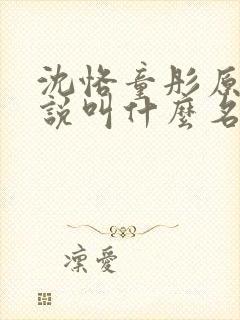 沈恪童彤原
說叫什麼名
凜愛